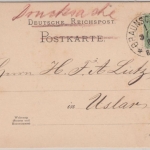 Drucksache
DEUTSCHE REICHSPOST
POSTKARTE
BRAUNSC
Herrn H. F. A. Lutz
in Uslar